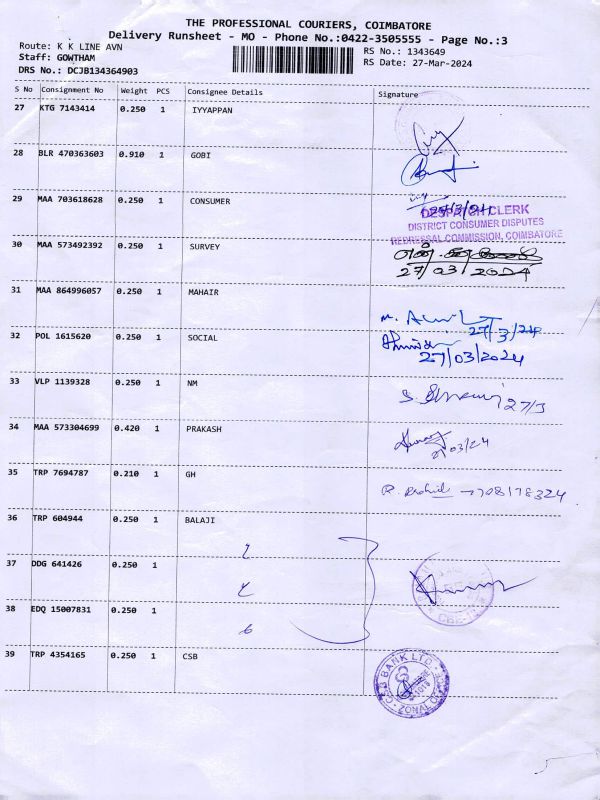 THE PROFESSIONAL COURIERS, COIMBATORE
Delivery Runsheet - MO - Phone No.:0422-3505555 - Page No.:3
Route: K K LINE AVN
Staff: GOWTHAM
DRS No.: DCJB134364903
RS No.: 1343649
RS Date: 27-Mar-2024
S No Consignment No Weight PCS Consignee Details Signature
27 KTG 7143414 0.250 1 IYYAPPAN
28 BLR 470363603 0.910 1 GOBI
29 MAA 703618628 0.250 1 CONSUMER
DESPATCH CLERK
DISTRICT CONSUMER DISPUTES
REDRESSAL COMMISSION, COIMBATORE
30 MAA 573492392 0.250 1 SURVEY
27/03/2024
31 MAA 864996057 0.250 1 MAHAIR
27/3/24
32 POL 1615620 0.250 1 SOCIAL
27/03/2024
33 VLP 1139328 0.250 1 NM
27/3
34 MAA 573304699 0.420 1 PRAKASH
35 TRP 7694787 0.210 1 GH
36 TRP 604944 0.250 1 BALAJI
37 DDG 641426 0.250 1
38 EDQ 15007831 0.250 1
39 TRP 4354165 0.250 1 CSB
CSB BANK LTD.